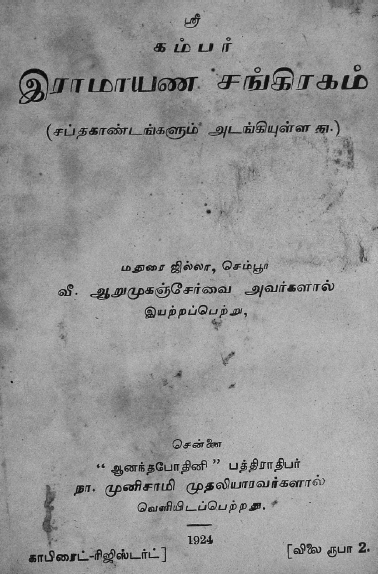 ஸ்ரீ
கம்பர்
இராமாயண சங்கிரகம்
(சப்தகாண்டங்களும் அடங்கியுள்ளது.)
மதுரை ஜில்லா, செம்பூர்
வீ. ஆறுமுகஞ்சேர்வை அவர்களால்
இயற்றப்பெற்று,
சென்னை
“ ஆனந்தபோதினி ” பத்திராதிபர்
நா. முனிசாமி முதலியாரவர்களால்
வெளியிடப்பெற்றது.
1924
காபிரைட்-ரிஜிஸ்டர்ட்] [விலை ரூபா 2.